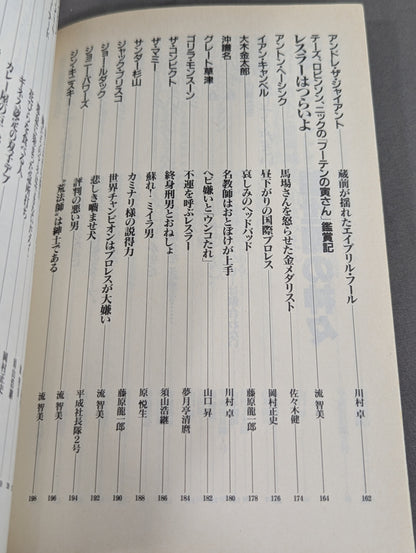 アンドレ・ザ・ジャイアント 蔵前が揺れたエイプリル・フール 川村 卓 162
テーズ、ロビンソン、ニックの「フーテンの寅さん」鑑賞記
レスラーはつらいよ 流 智美 164
アントン・ヘーシンク 馬場さんを怒らせた金メダリスト 佐々木健 174
イアン・キャンベル 昼下がりの国際プロレス 岡村正史 176
大木金太郎 哀しみのヘッドバッド 藤原龍一郎 178
沖識名 名教師はおとぼけが上手 川村 卓 180
グレート草津 ヘビ嫌いと「ウンコたれ」 山口 昇 182
ゴリラ・モンスーン 不運を呼ぶレスラー 夢月亭清麿 184
ザ・コンビクト 終身刑男とおねしょ 須山浩継 186
ザ・マミー 蘇れ!ミイラ男 原 悦生 188
サンダー杉山 カミナリ様の説得力 藤原龍一郎 190
ジャック・ブリスコ 世界チャンピオンはプロレスが大嫌い 流 智美 192
ジョー・ルダック 悲しき噛ませ犬 平成社長隊2号 194
ジョニー・パワーズ 評判の悪い男 流 智美 196
ジン・キニスキー “荒法師”は紳士である 流 智美 198
岡村正史